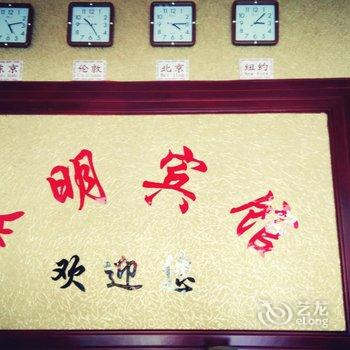 东京 伦敦 北京 纽约
New York
明宾馆
欢迎您
艺龙
eLong